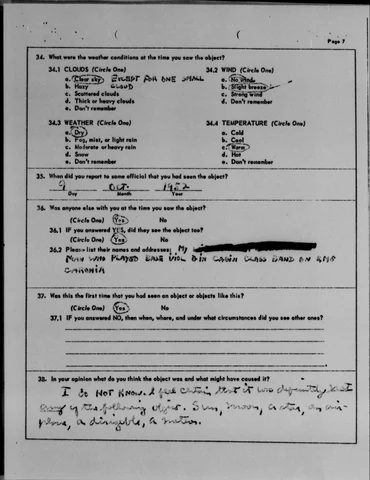 Page 7
34. What were the weather conditions at the time you saw the object?
34.1 CLOUDS (Circle One) 34.2 WIND (Circle One)
a. Clear sky EXCEPT FOR ONE SMALL CLOUD a. No winds
b. Hazy b. Slight breeze
c. Scattered clouds c. Strong wind
d. Thick or heavy clouds d. Don't remember
e. Don't remember
34.3 WEATHER (Circle One) 34.4 TEMPERATURE (Circle One)
a. Dry a. Cold
b. Fog, mist, or light rain b. Cool
c. Moderate or heavy rain c. Warm
d. Snow d. Hot
e. Don't remember e. Don't remember
35. When did you report to some official that you had seen the object?
9 OCT. 1952
Day Month Year
36. Was anyone else with you at the time you saw the object?
(Circle One) Yes No
36.1 IF you answered YES, did they see the object too?
(Circle One) Yes No
36.2 Please list their names and addresses: MY
MAN WHO PLAYED BASE VIOL IN CABIN CLASS BAND ON RMS
37. Was this the first time that you had seen an object or objects like this?
(Circle One) Yes No
37.1 IF you answered NO, then when, where, and under what circumstances did you see other ones?
38. In your opinion what do you think the object was and what might have caused it?
I DO NOT KNOW. I feel certain that it was definitely not
any of the following object. Sun, moon, a star, an air-
plane, a dirigible, a meteor.